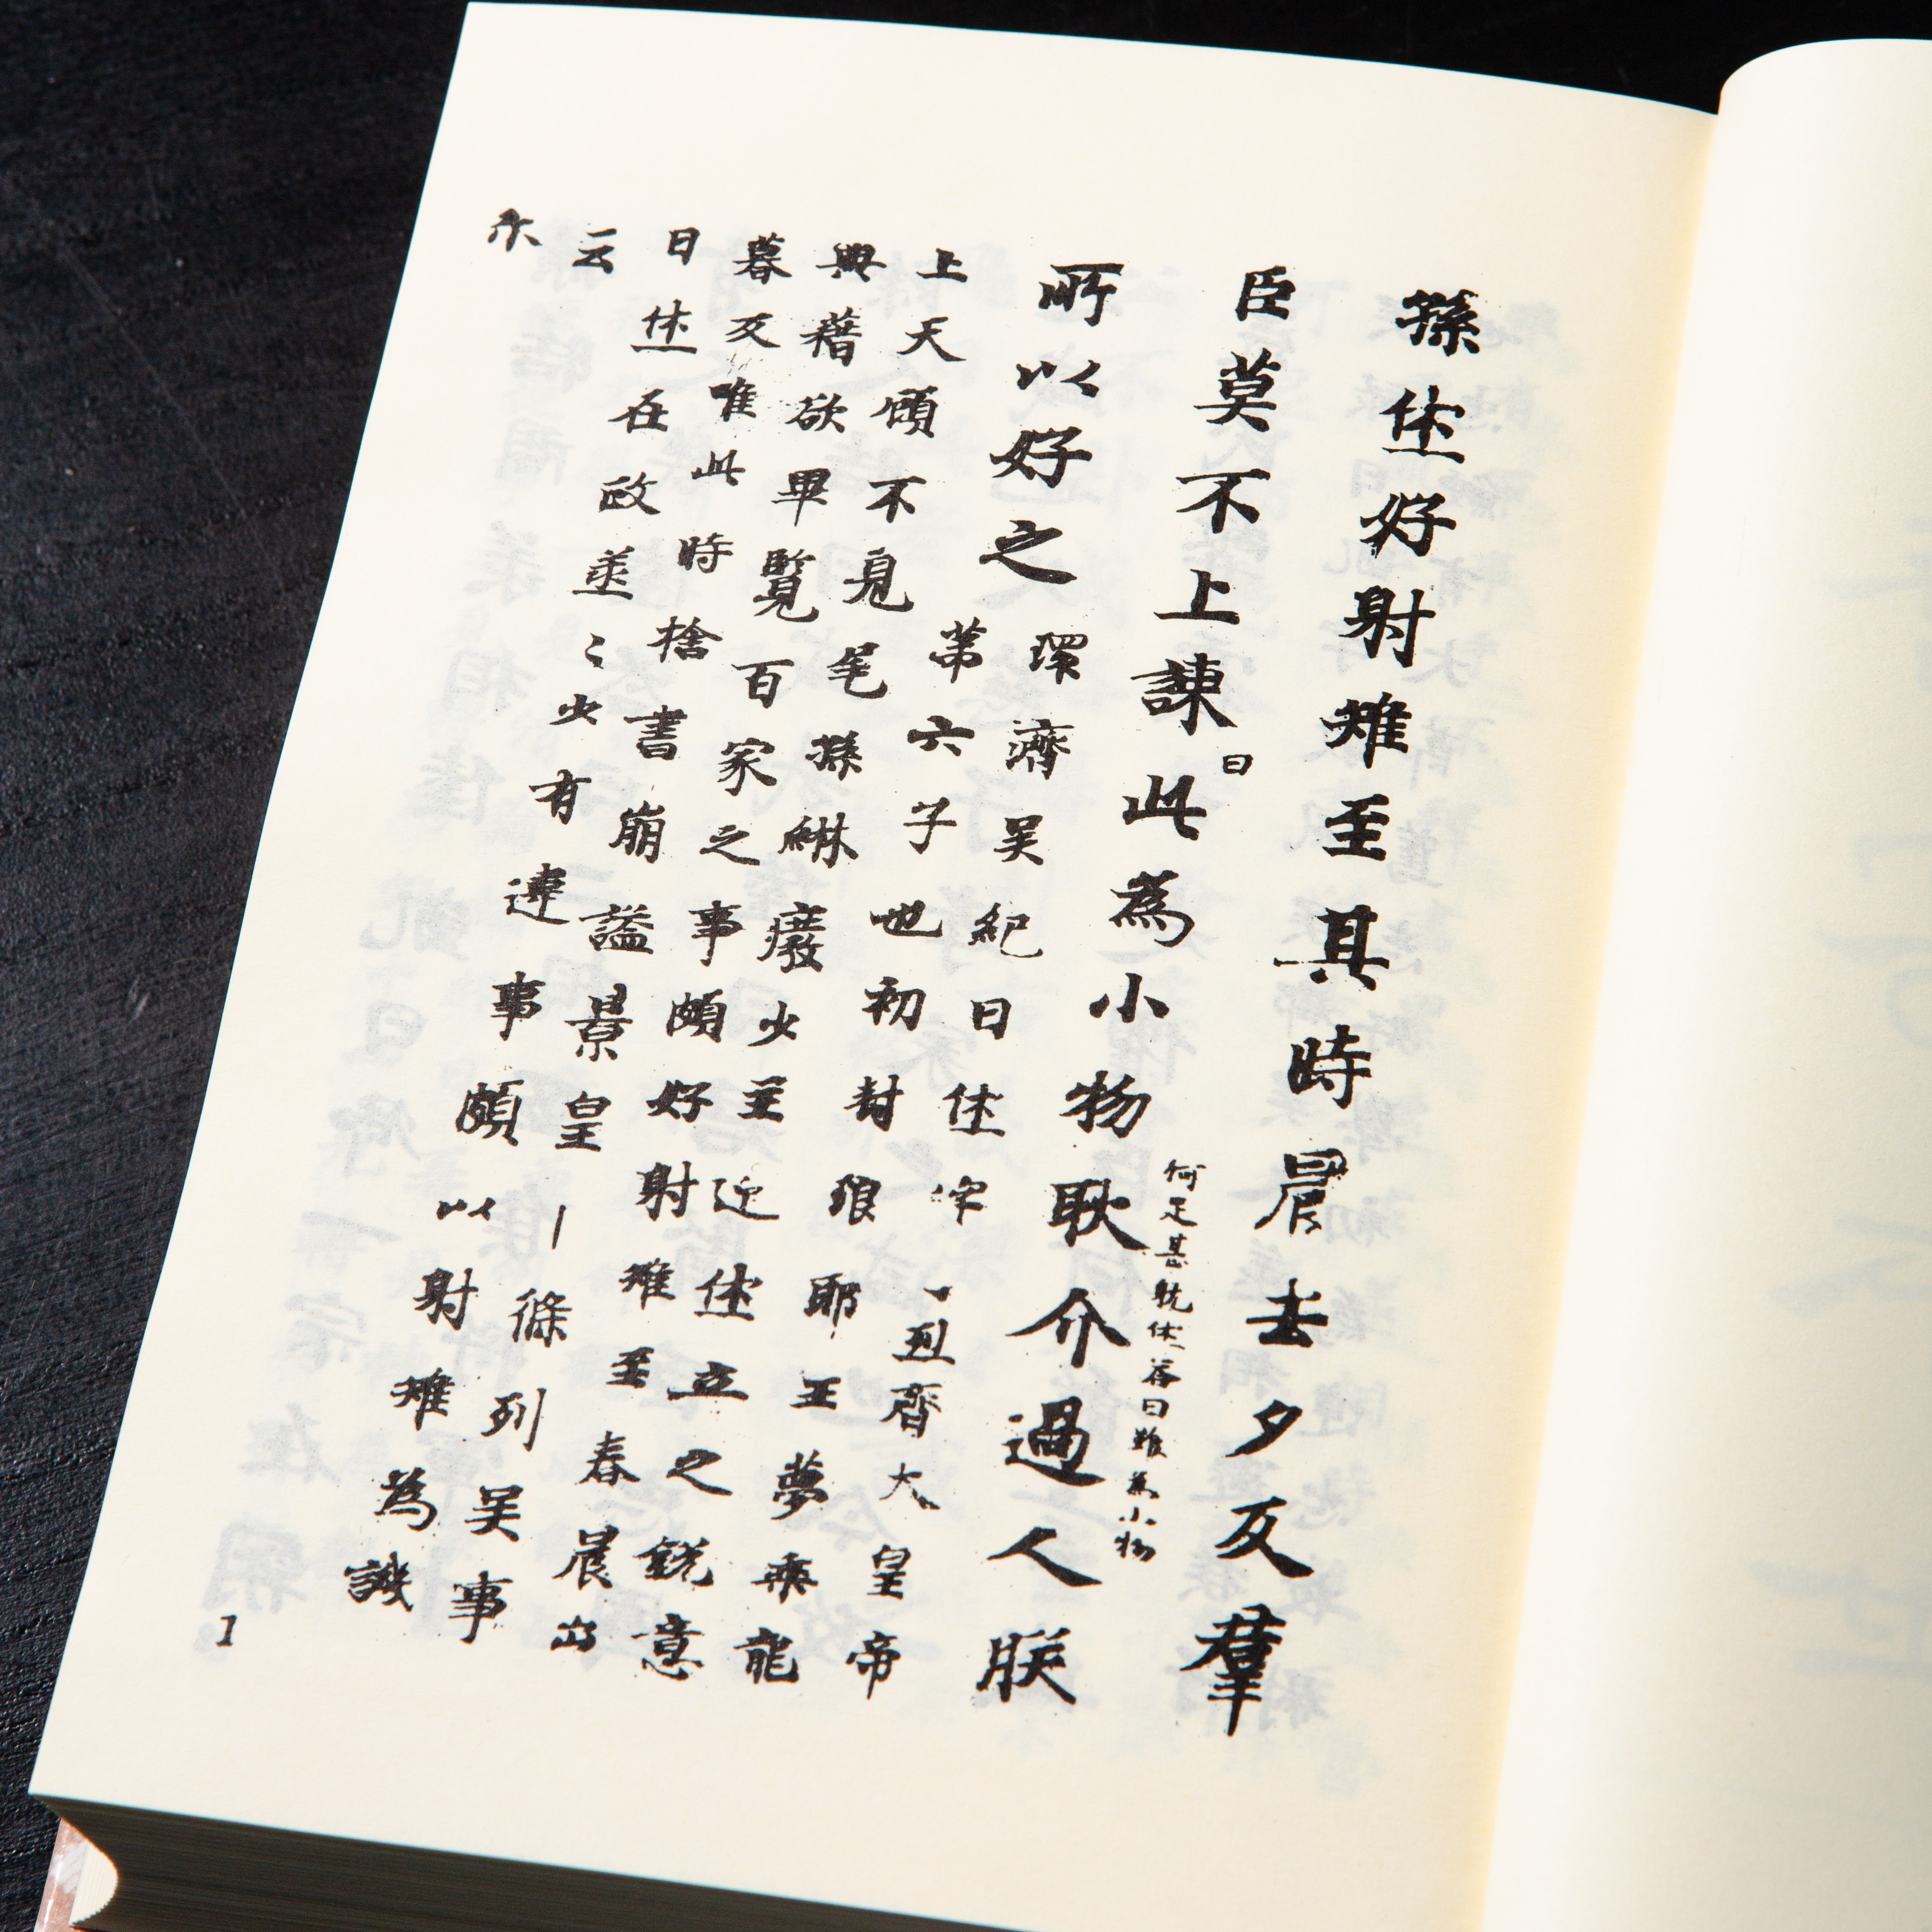 孫休好射雉至其時晨去夕反羣
臣莫不上諫曰此為小物耿介過人朕
何足甚躭休荅曰雖為小物
所以好之
環濟吴紀曰休字烈齊大皇帝
第六子也初封琅耶王夢乘龍
上天顧不見尾孫綝廢少主迎休立之銳意
典藉欲畢覽百家之事頗好射雉至春晨出
暮反唯此時捨書崩謚景皇丨條列吴事
曰休在政蒸〻少有違事頗以射雉為譏
云
尒
1